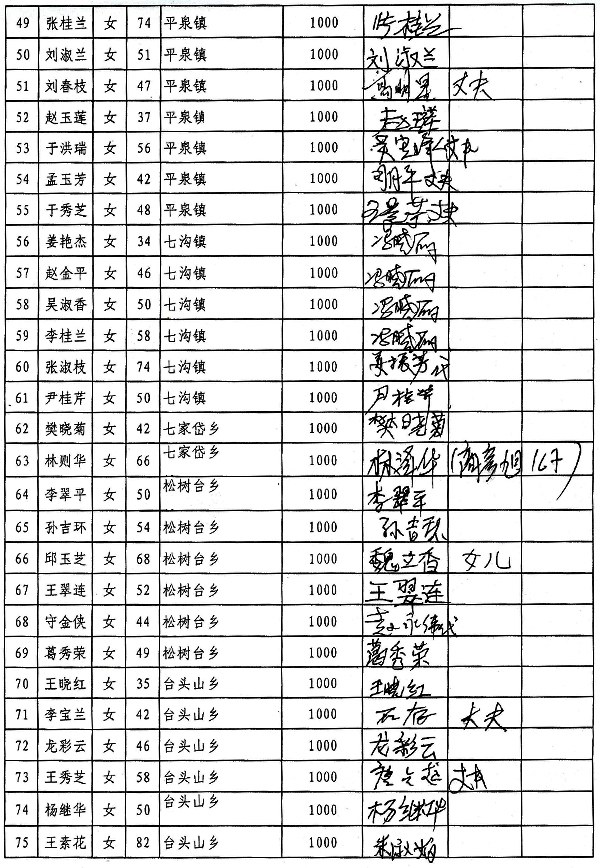 49 张桂兰 女 74 平泉镇 1000 张桂兰
50 刘淑兰 女 51 平泉镇 1000 刘淑兰
51 刘春枝 女 47 平泉镇 1000 丈夫
52 赵玉莲 女 37 平泉镇 1000
53 于洪瑞 女 56 平泉镇 1000 丈夫
54 孟玉芳 女 42 平泉镇 1000 丈夫
55 于秀芝 女 48 平泉镇 1000 丈夫
56 姜艳杰 女 34 七沟镇 1000
57 赵金平 女 46 七沟镇 1000
58 吴淑香 女 50 七沟镇 1000
59 李桂兰 女 58 七沟镇 1000
60 张淑枝 女 74 七沟镇 1000 代
61 尹桂芹 女 50 七沟镇 1000 尹桂芹
62 樊晓菊 女 42 七家岱乡 1000 樊晓菊
63 林则华 女 66 七家岱乡 1000 林泽华
64 李翠平 女 50 松树台乡 1000 李翠平
65 孙吉环 女 54 松树台乡 1000 孙吉环
66 邱玉芝 女 68 松树台乡 1000 魏立香 女儿
67 王翠连 女 52 松树台乡 1000 王翠连
68 守金侠 女 44 松树台乡 1000 代
69 葛秀荣 女 49 松树台乡 1000 葛秀荣
70 王晓红 女 35 台头山乡 1000 王晓红
71 李宝兰 女 42 台头山乡 1000 石存 丈夫
72 龙彩云 女 46 台头山乡 1000 龙彩云
73 王秀芝 女 58 台头山乡 1000 丈夫
74 杨继华 女 50 台头山乡 1000 杨继华
75 王素花 女 82 台头山乡 1000